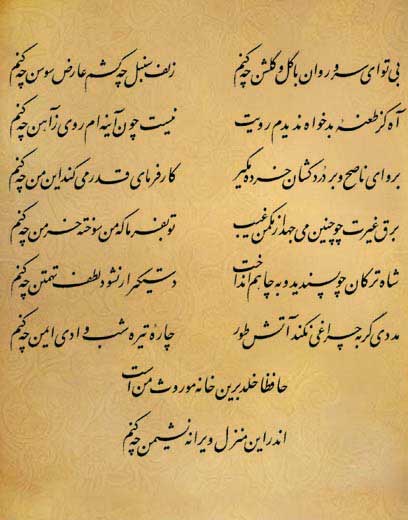 بی تو ای سرو روان با گل و گلشن چه کنم زلف سنبل چه کشم عارض سوسن چه کنم
آه کز طعنهٔ بدخواه ندیدم رویت نیست چون آینه ام روی ز آهن چه کنم
برو ای ناصح و بر دردکشان خرده مگیر کارفرمای قدر می کند این من چه کنم
برق غیرت چو چنین می جهد از مکمن غیب تو بفرما که من سوخته خرمن چه کنم
شاه ترکان چو پسندید و به چاهم انداخت دستگیر ار نشود لطف تهمتن چه کنم
مددی گر به چراغی نکند آتش طور چارهٔ تیره شب وادی ایمن چه کنم
حافظا خلد برین خانه موروث من است
اندر این منزل ویرانه نشیمن چه کنم